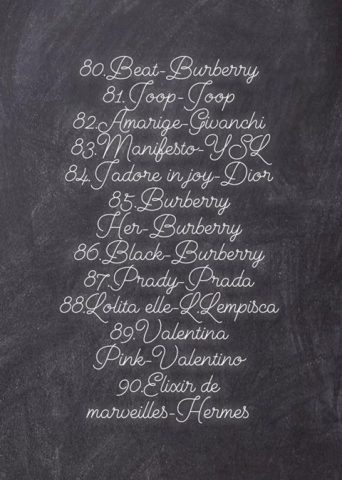 80.Beat-Burberry
81.Joop-Joop
82.Amarige-Gwanchi
83.Manifesto-YSL
84.Jadore in joy-Dior
85.Burberry
Her-Burberry
86.Black-Burberry
87.Prady-Prada
88.Lolita elle-L.Lempisca
89.Valentina
Pink-Valentino
90.Elixir de
marveilles-Hermes